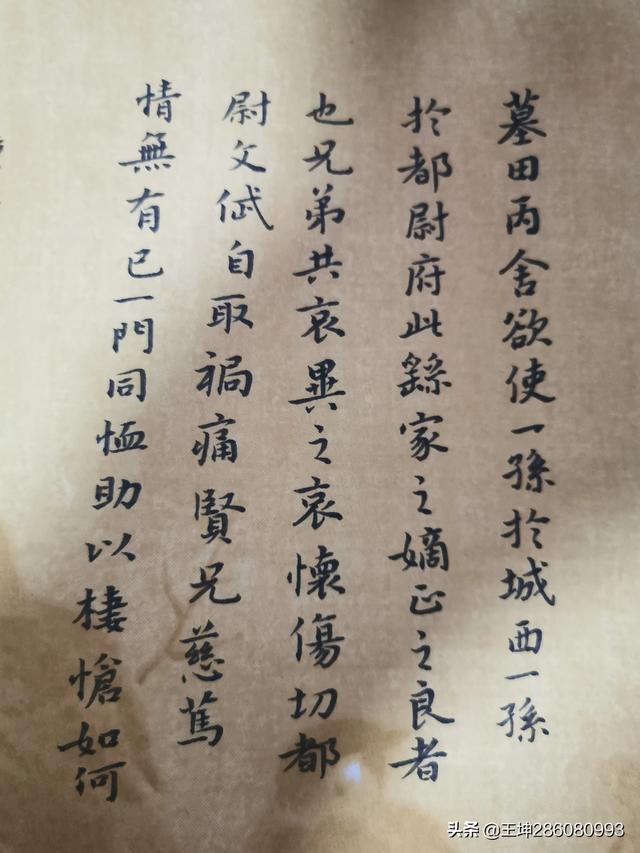 墓田丙舍欲使一孫於城西一孫
於都尉府此繇家之嫡正之良者
也兄弟共哀異之哀懷傷切都
尉文倵自取禍痛賢兄慈篤
情無有已一門同恤助以棲愴如何
头条 @王坤286080993